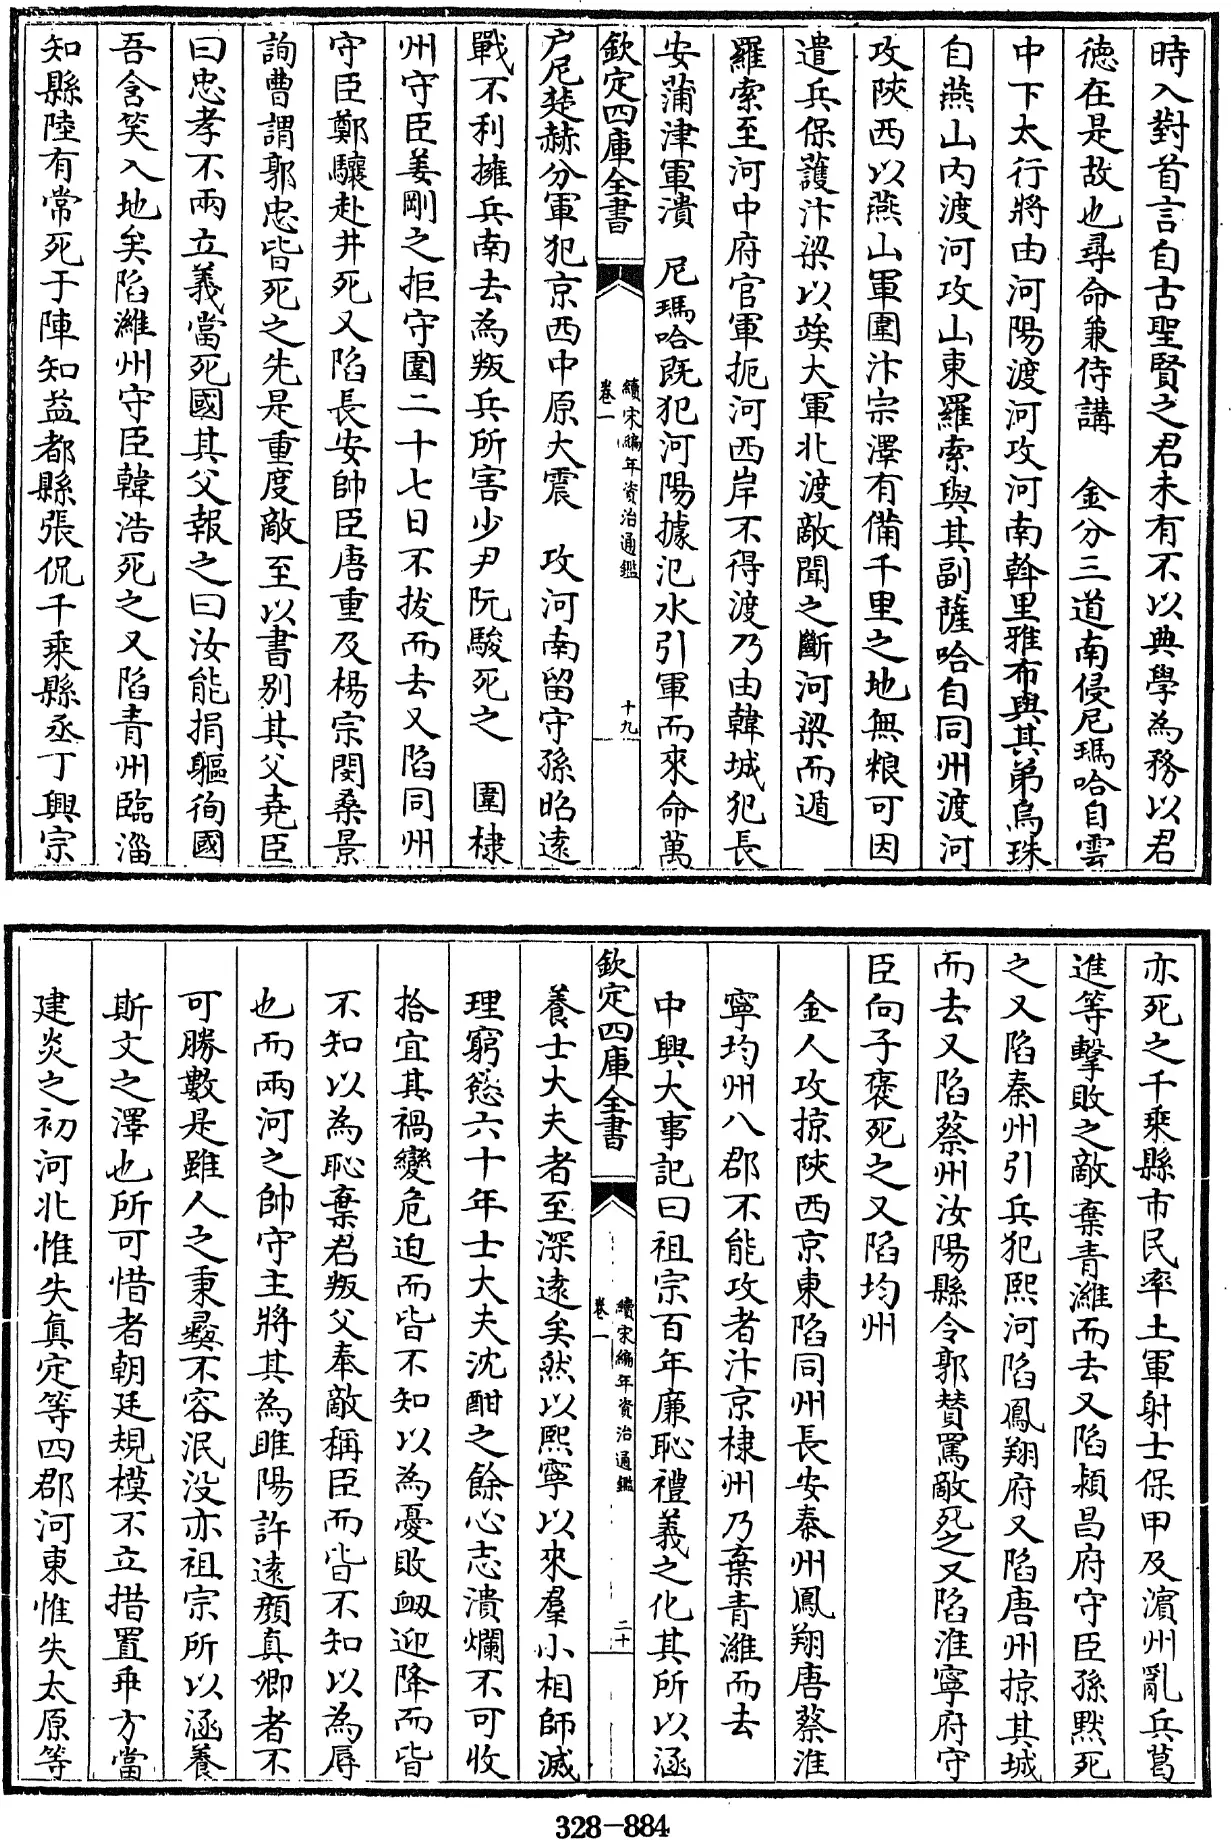 時入對首言自古聖賢之君未有不以典學為務以君
徳在是故也尋命兼侍講　金分三道南侵尼瑪哈自雲
中下太行將由河陽渡河攻河南斡里雅布與其弟烏珠
自燕山内渡河攻山東羅索與其副薩哈自同州渡河
攻陜西以燕山軍圍汴宗澤有備千里之地無粮可因
遣兵保護汴梁以竢大軍北渡敵聞之斷河梁而遁
羅索至河中府官軍扼河西岸不得渡乃由韓城犯長
安蒲津軍潰　尼瑪哈既犯河陽據汜水引軍而來命萬
欽定四庫全書
續宋編年資治通鑑
卷一
十九
户尼楚赫分軍犯京西中原大震　攻河南留守孫昭逺
戰不利擁兵南去為叛兵所害少尹阮駿死之　圍棣
州守臣姜剛之拒守圍二十七日不拔而去又陷同州
守臣鄭驤赴井死又陷長安帥臣唐重及楊宗閔桑景
詢曹謂郭忠皆死之先是重度敵至以書别其父堯臣
曰忠孝不兩立義當死國其父報之曰汝能捐軀徇國
吾含笑入地矣陷濰州守臣韓浩死之又陷青州臨淄
知縣陸有常死于陣知益都縣張侃千乘縣丞丁興宗
亦死之千乘縣市民率土軍射士保甲及濵州亂兵葛
進等擊敗之敵棄青濰而去又陷頴昌府守臣孫黙死
之又陷秦州引兵犯熙河陷鳳翔府又陷唐州掠其城
而去又陷蔡州汝陽縣令郭贊罵敵死之又陷淮寧府守
臣向子褒死之又陷均州
金人攻掠陜西京東陷同州長安秦州鳳翔唐蔡淮
寧均州八郡不能攻者汴京棣州乃棄青濰而去
中興大事記曰祖宗百年廉恥禮義之化其所以涵
欽定四庫全書
續宋編年資治通鑑
卷一
二十
養士大夫者至深逺矣然以熙寧以來羣小相師滅
理窮慾六十年士大夫沈酣之餘心志潰爛不可收
拾宜其禍變危迫而皆不知以為憂敗衂迎降而皆
不知以為恥棄君叛父奉敵稱臣而皆不知以為辱
也而兩河之帥守主將其為睢陽許逺顔真卿者不
可勝數是雖人之秉彞不容泯没亦祖宗所以涵養
斯文之澤也所可惜者朝廷規模不立措置乖方當
建炎之初河北惟失真定等四郡河東惟失太原等
328-884